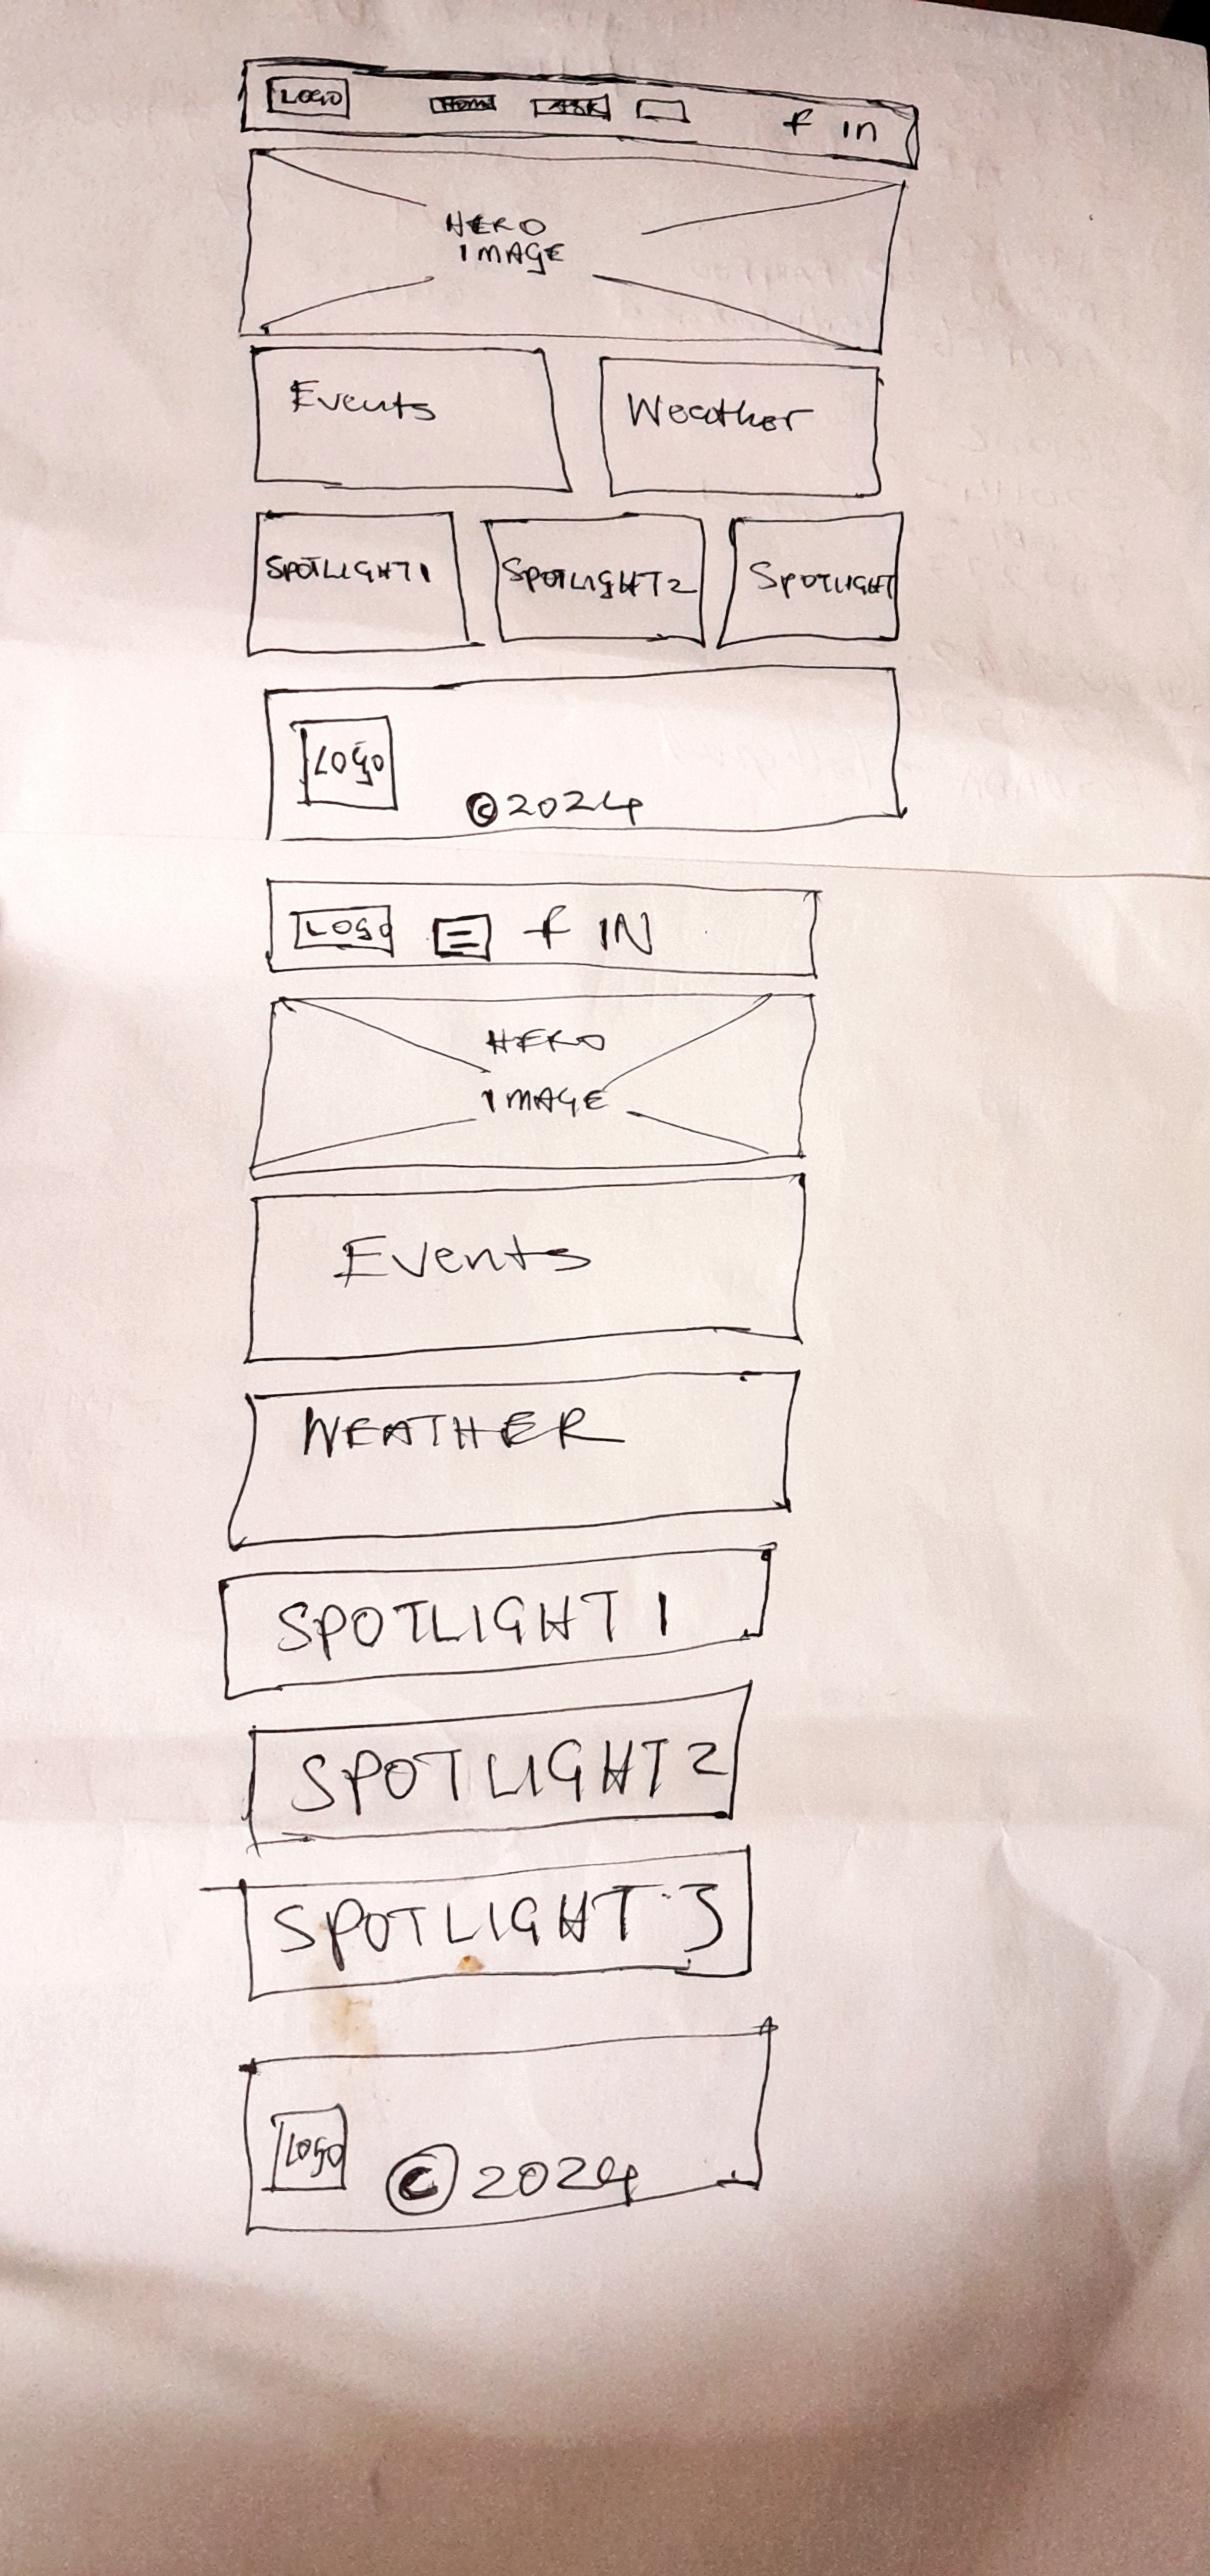 LOGO Home f in
HERO
IMAGE
Events Weather
SPOTLIGHT1 SPOTLIGHT2 SPOTLIGHT
LOGO
©2024
LOGO f IN
HERO
IMAGE
Events
WEATHER
SPOTLIGHT 1
SPOTLIGHT 2
SPOTLIGHT 3
LOGO
©2024